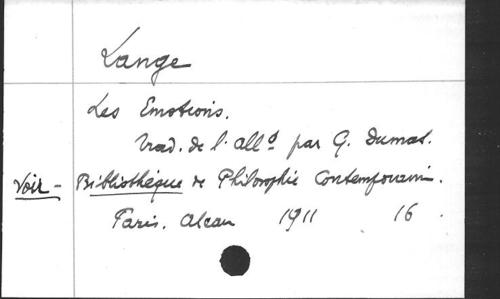 Lange
Les Emotions.
trad. de l'alld par G. Dumas.
Voir - Bibliothèque de Philosophie Contemporaine.
Paris. Alcan 1911 16.